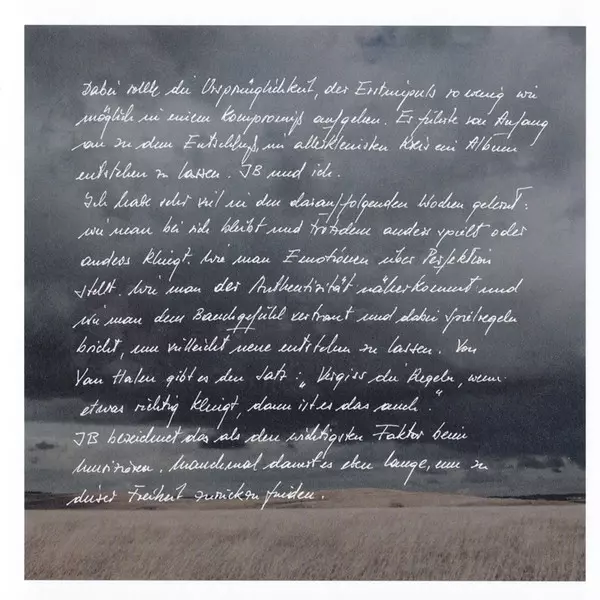 Dabei sollte die Ursprünglichkeit, der Erstimpuls so wenig wie
möglich in einem Kompromiß aufgehen. Es führte von Anfang
an zu dem Entschluß, im allerkleinsten Kreis ein Album
entstehen zu lassen. JB und ich.
Ich habe sehr viel in den darauffolgenden Wochen gelernt:
wie man bei sich bleibt und trotzdem anders spielt oder
anders klingt. Wie man Emotionen über Perfektion
stellt. Wie man der Authentizität näherkommt und
wie man dem Bauchgefühl vertraut und dabei Spielregeln
bricht, um vielleicht neue entstehen zu lassen. Von
Van Halen gibt es den Satz: „Vergiss die Regeln, wenn
etwas richtig klingt, dann ist es das auch."
JB bezeichnet das als den wichtigsten Faktor beim
Musizieren. Manchmal dauert es eben lange, um zu
dieser Freiheit zurückzufinden.